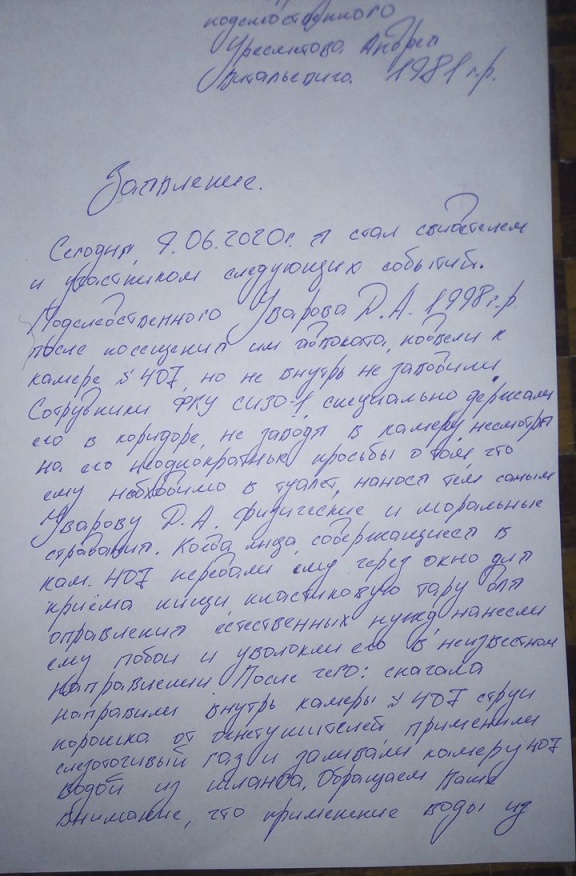 подследственного
Андрея
Витальевича 1981 г.р.
Заявление.
Сегодня, 9.06.2020г. я стал свидетелем
и участником следующих событий.
Подследственного Уварова Д.А. 1998 г.р
после посещения им адвоката, подвели к
камере №407, но не внутрь не заводили.
Сотрудники ФКУ СИЗО-1, специально держали
его в коридоре, не заводя в камеру, несмотря
на его неоднократные просьбы о том, что
ему необходимо в туалет, нанося тем самым
Уварову Д.А. физические и моральные
страдания. Когда лица, содержащиеся в
кам. 407 передали ему через окно для
приёма пищи, пластиковую тару для
оправления естественных нужд, нанесли
ему побои и уволокли его в неизвестном
направлении. После чего: сначала
направили внутрь камеры №407 струи
порошка от огнетушителей, применили
слезоточивый газ и заливали камеру 407
водой из шланга. Обращаем Ваше
внимание, что применение воды из